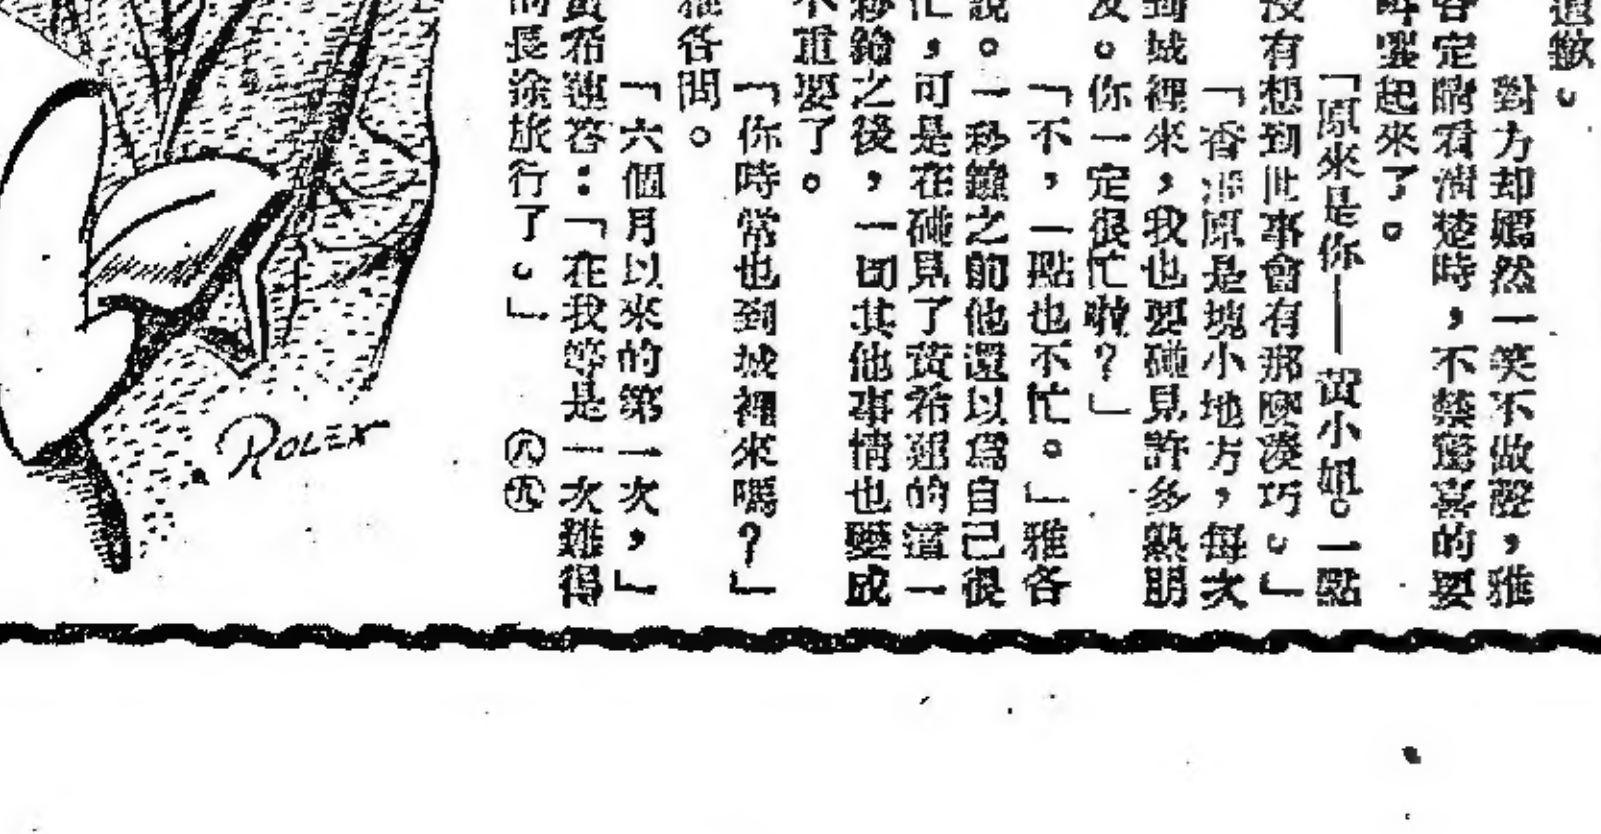 道歉。
對方却嫣然一笑不做聲，雅
各定睛看清楚時，不禁驚喜的要
叫嚷起來了。
「原來是你——黃小姐。一點
沒有想到世事會有那麽湊巧。」
「香港原是塊小地方，每次
到城裡來，我也要碰見許多熟朋
友。你一定很忙啦？」
「不，一點也不忙。」雅各
說。一秒鐘之前他還以爲自己很
忙，可是在碰見了黃希運的這一
秒鐘之後，一切其他事情也變成
不重要了。
「你時常也到城裡來嗎？」
雅各問。
「六個月以來的第一次，」
黃希運答：「在我算是一次難得
的長途旅行了。」 ㊇㊈
ROLEX